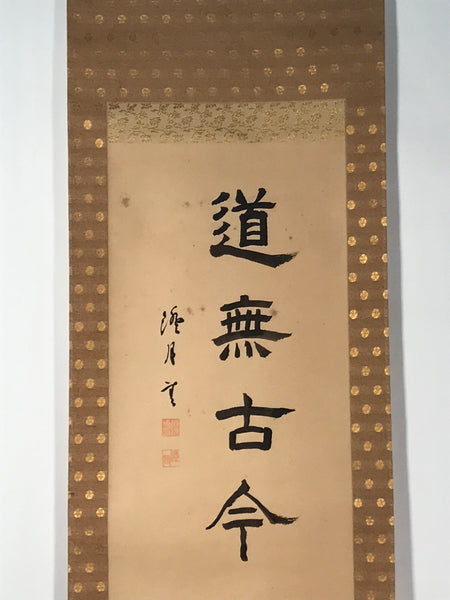 道無古今
月